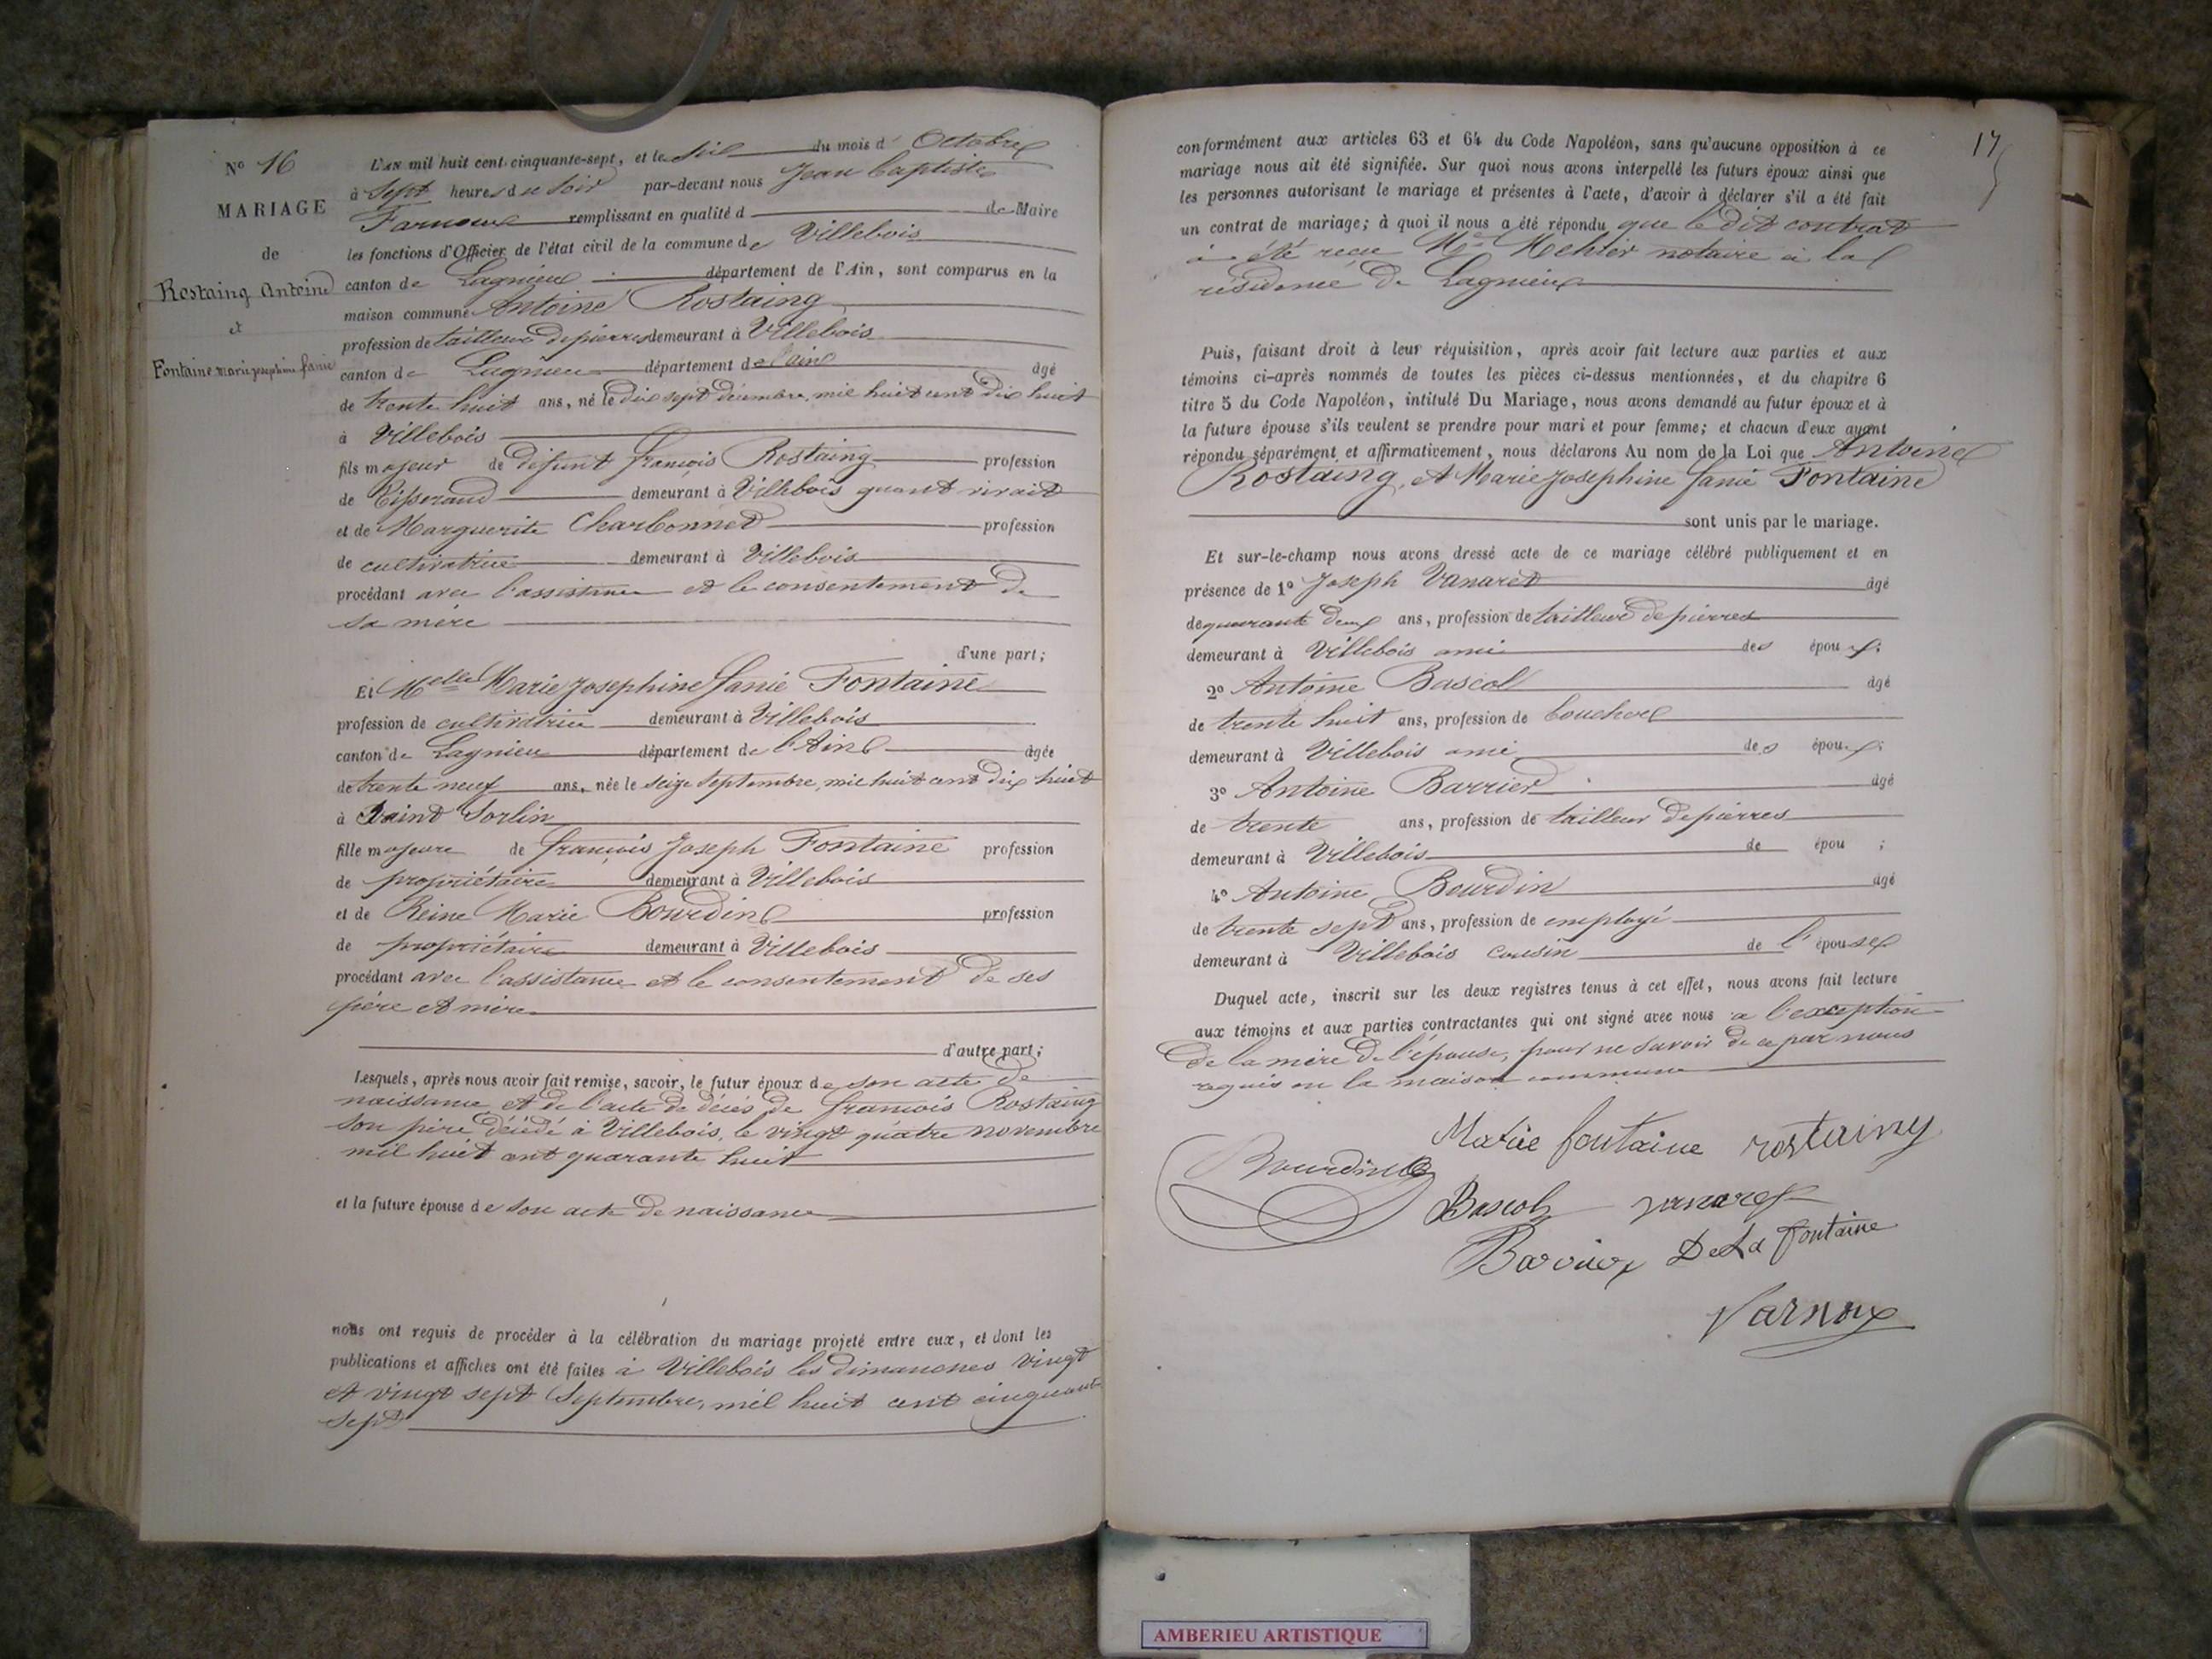 N° 16
MARIAGE
de
Rostaing Antoine
et
Fontaine marie josephine fanie
L'AN mil huit cent cinquante-sept, et le six du mois d' Octobre
à Sept heures du Soir par-devant nous Jean Baptiste
Farnoux remplissant en qualité d de Maire
les fonctions d'Officier de l'état civil de la commune de Villebois
canton de Lagnieu département de l'Ain, sont comparus en la
maison commune Antoine Rostaing
profession de tailleur de pierres demeurant à Villebois
canton de Lagnieu département de l'ain âgé
de trente huit ans, né le dix sept décembre, mil huit cent dix huit
à Villebois
fils majeur de défunt françois Rostaing profession
de Tisserand demeurant à Villebois quant vivait
et de Marguerite Charbonnet profession
de cultivatrice demeurant à Villebois
procédant avec l'assistance et le consentement de
sa mère
d'une part;
Et Melle Marie Josephine fanie Fontaine
profession de cultivatrice demeurant à Villebois
canton de Lagnieu département de l'Ain âgée
de trente neuf ans, née le seize Septembre, mil huit cent dix huit
à Saint Sorlin
fille majeure de françois Joseph Fontaine profession
de propriétaire demeurant à Villebois
et de Reine Marie Bourdin profession
de propriétaire demeurant à Villebois
procédant avec l'assistance et le consentement de ses
père et mère
d'autre part;
Lesquels, après nous avoir fait remise, savoir, le futur époux de son acte de
naissance et de l'acte de décès de françois Rostaing
son père décédé à Villebois, le vingt quatre novembre
mil huit cent quarante huit
et la future épouse de son acte de naissance
nous ont requis de procéder à la célébration du mariage projeté entre eux, et dont les
publications et affiches ont été faites à Villebois les dimanches vingt
et vingt sept Septembre, mil huit cent cinquante
sept
17
conformément aux articles 63 et 64 du Code Napoléon, sans qu'aucune opposition à ce
mariage nous ait été signifiée. Sur quoi nous avons interpellé les futurs époux ainsi que
les personnes autorisant le mariage et présentes à l'acte, d'avoir à déclarer s'il a été fait
un contrat de mariage; à quoi il nous a été répondu que le dit contrat
a été reçu Me Mehier notaire à la
résidence de Lagnieu
Puis, faisant droit à leur réquisition, après avoir fait lecture aux parties et aux
témoins ci-après nommés de toutes les pièces ci-dessus mentionnées, et du chapitre 6
titre 5 du Code Napoléon, intitulé Du Mariage, nous avons demandé au futur époux et à
la future épouse s'ils veulent se prendre pour mari et pour femme; et chacun d'eux ayant
répondu séparément et affirmativement, nous déclarons Au nom de la Loi que Antoine
Rostaing, et Marie Josephine fanie Fontaine
sont unis par le mariage.
Et sur-le-champ nous avons dressé acte de ce mariage célébré publiquement et en
présence de 1° Joseph Vanaret âgé
de quarante deux ans, profession de tailleur de pierres
demeurant à Villebois ami des époux;
2° Antoine Bascol âgé
de trente huit ans, profession de boucher
demeurant à Villebois ami des époux;
3° Antoine Barrier âgé
de trente ans, profession de tailleur de pierres
demeurant à Villebois de épou ;
4° Antoine Bourdin âgé
de trente sept ans, profession de employé
demeurant à Villebois cousin de l'épouse
Duquel acte, inscrit sur les deux registres tenus à cet effet, nous avons fait lecture
aux témoins et aux parties contractantes qui ont signé avec nous a l'exception
de la mère de l'épouse, pour ne savoir de ce par nous
requis en la maison commune
Marie fontaine rostaing
Bourdin
Bascol vanaret
Barrier De La fontaine
Farnoux
AMBERIEU ARTISTIQUE